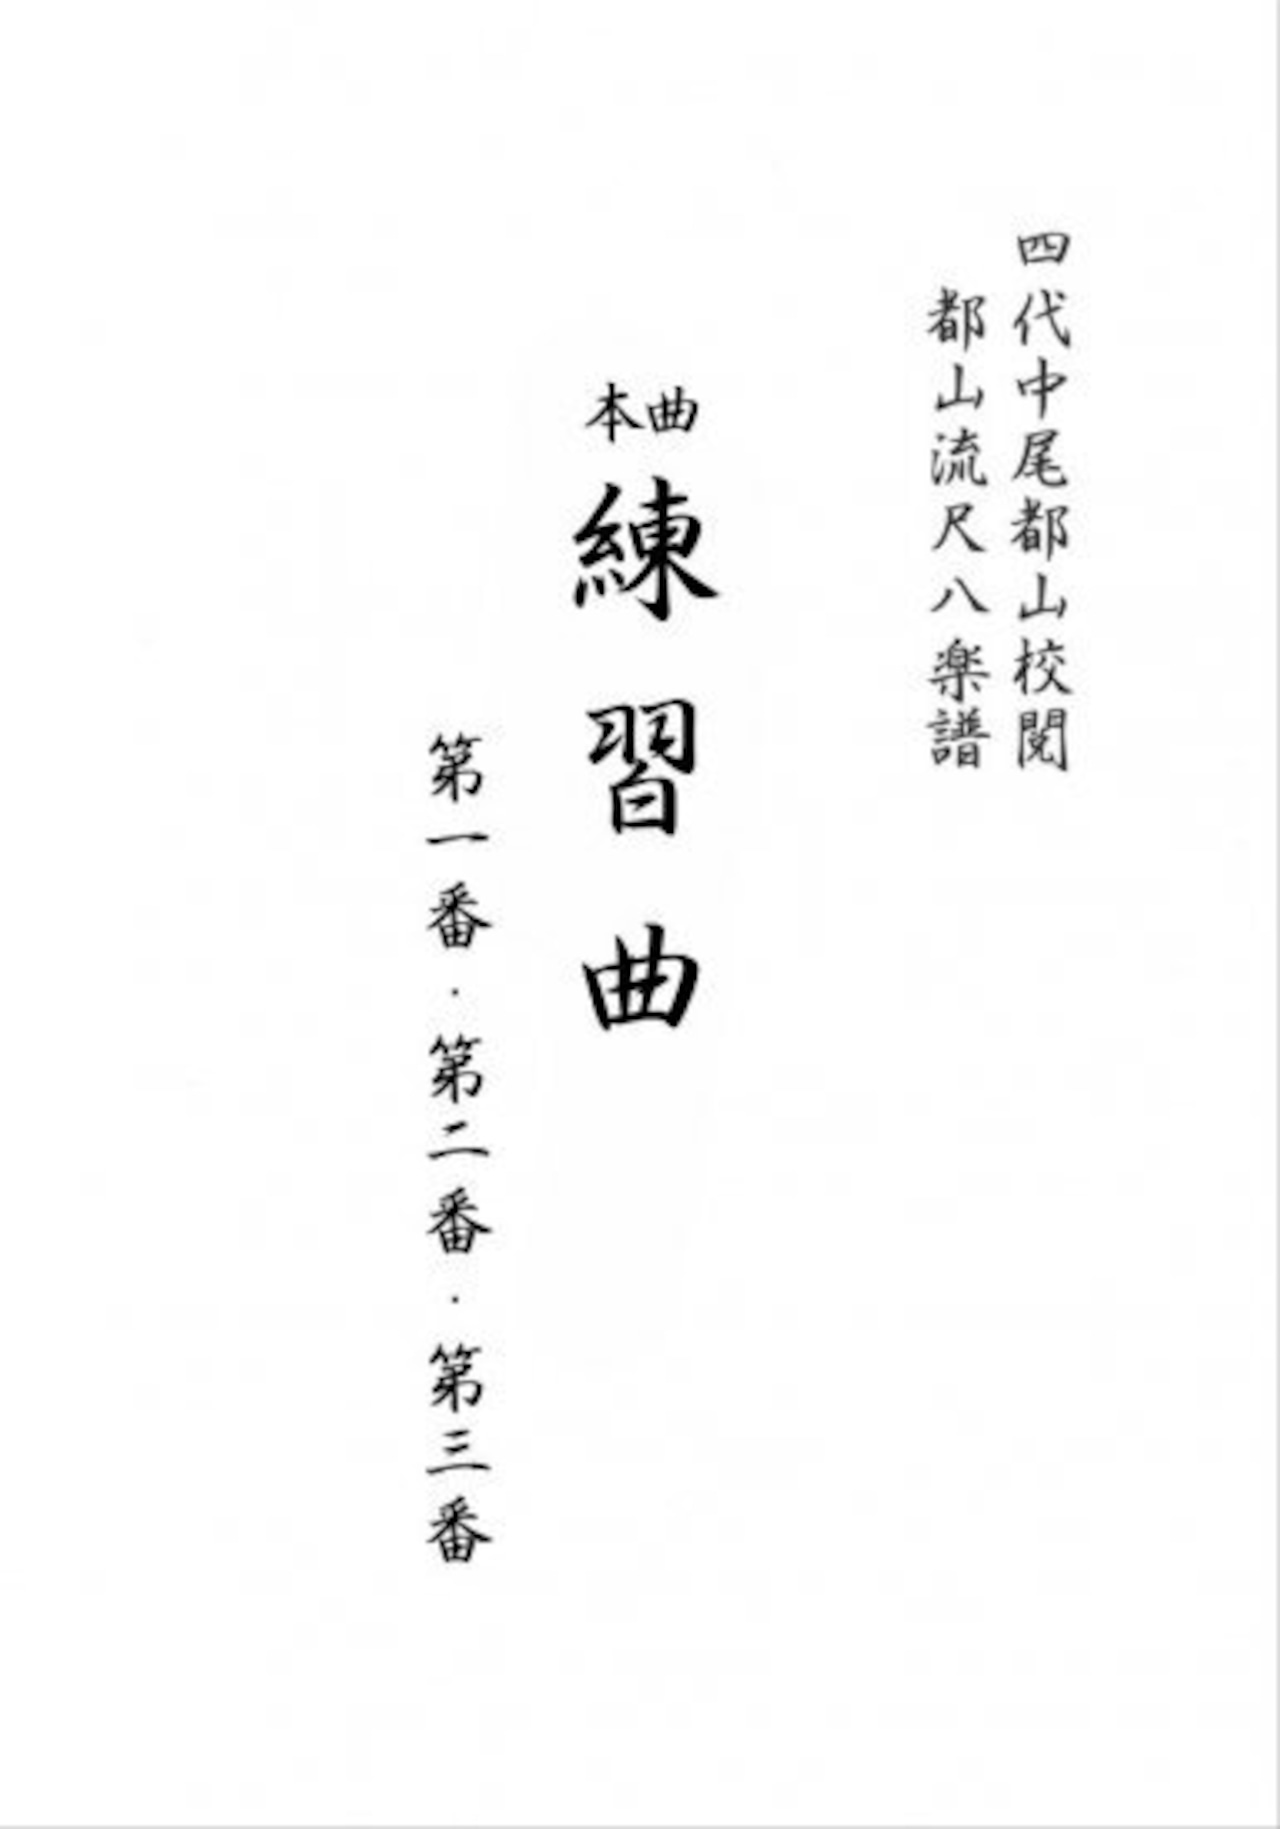 四代中尾都山校閲
都山流尺八楽譜
本曲
練習曲
第一番・第二番・第三番